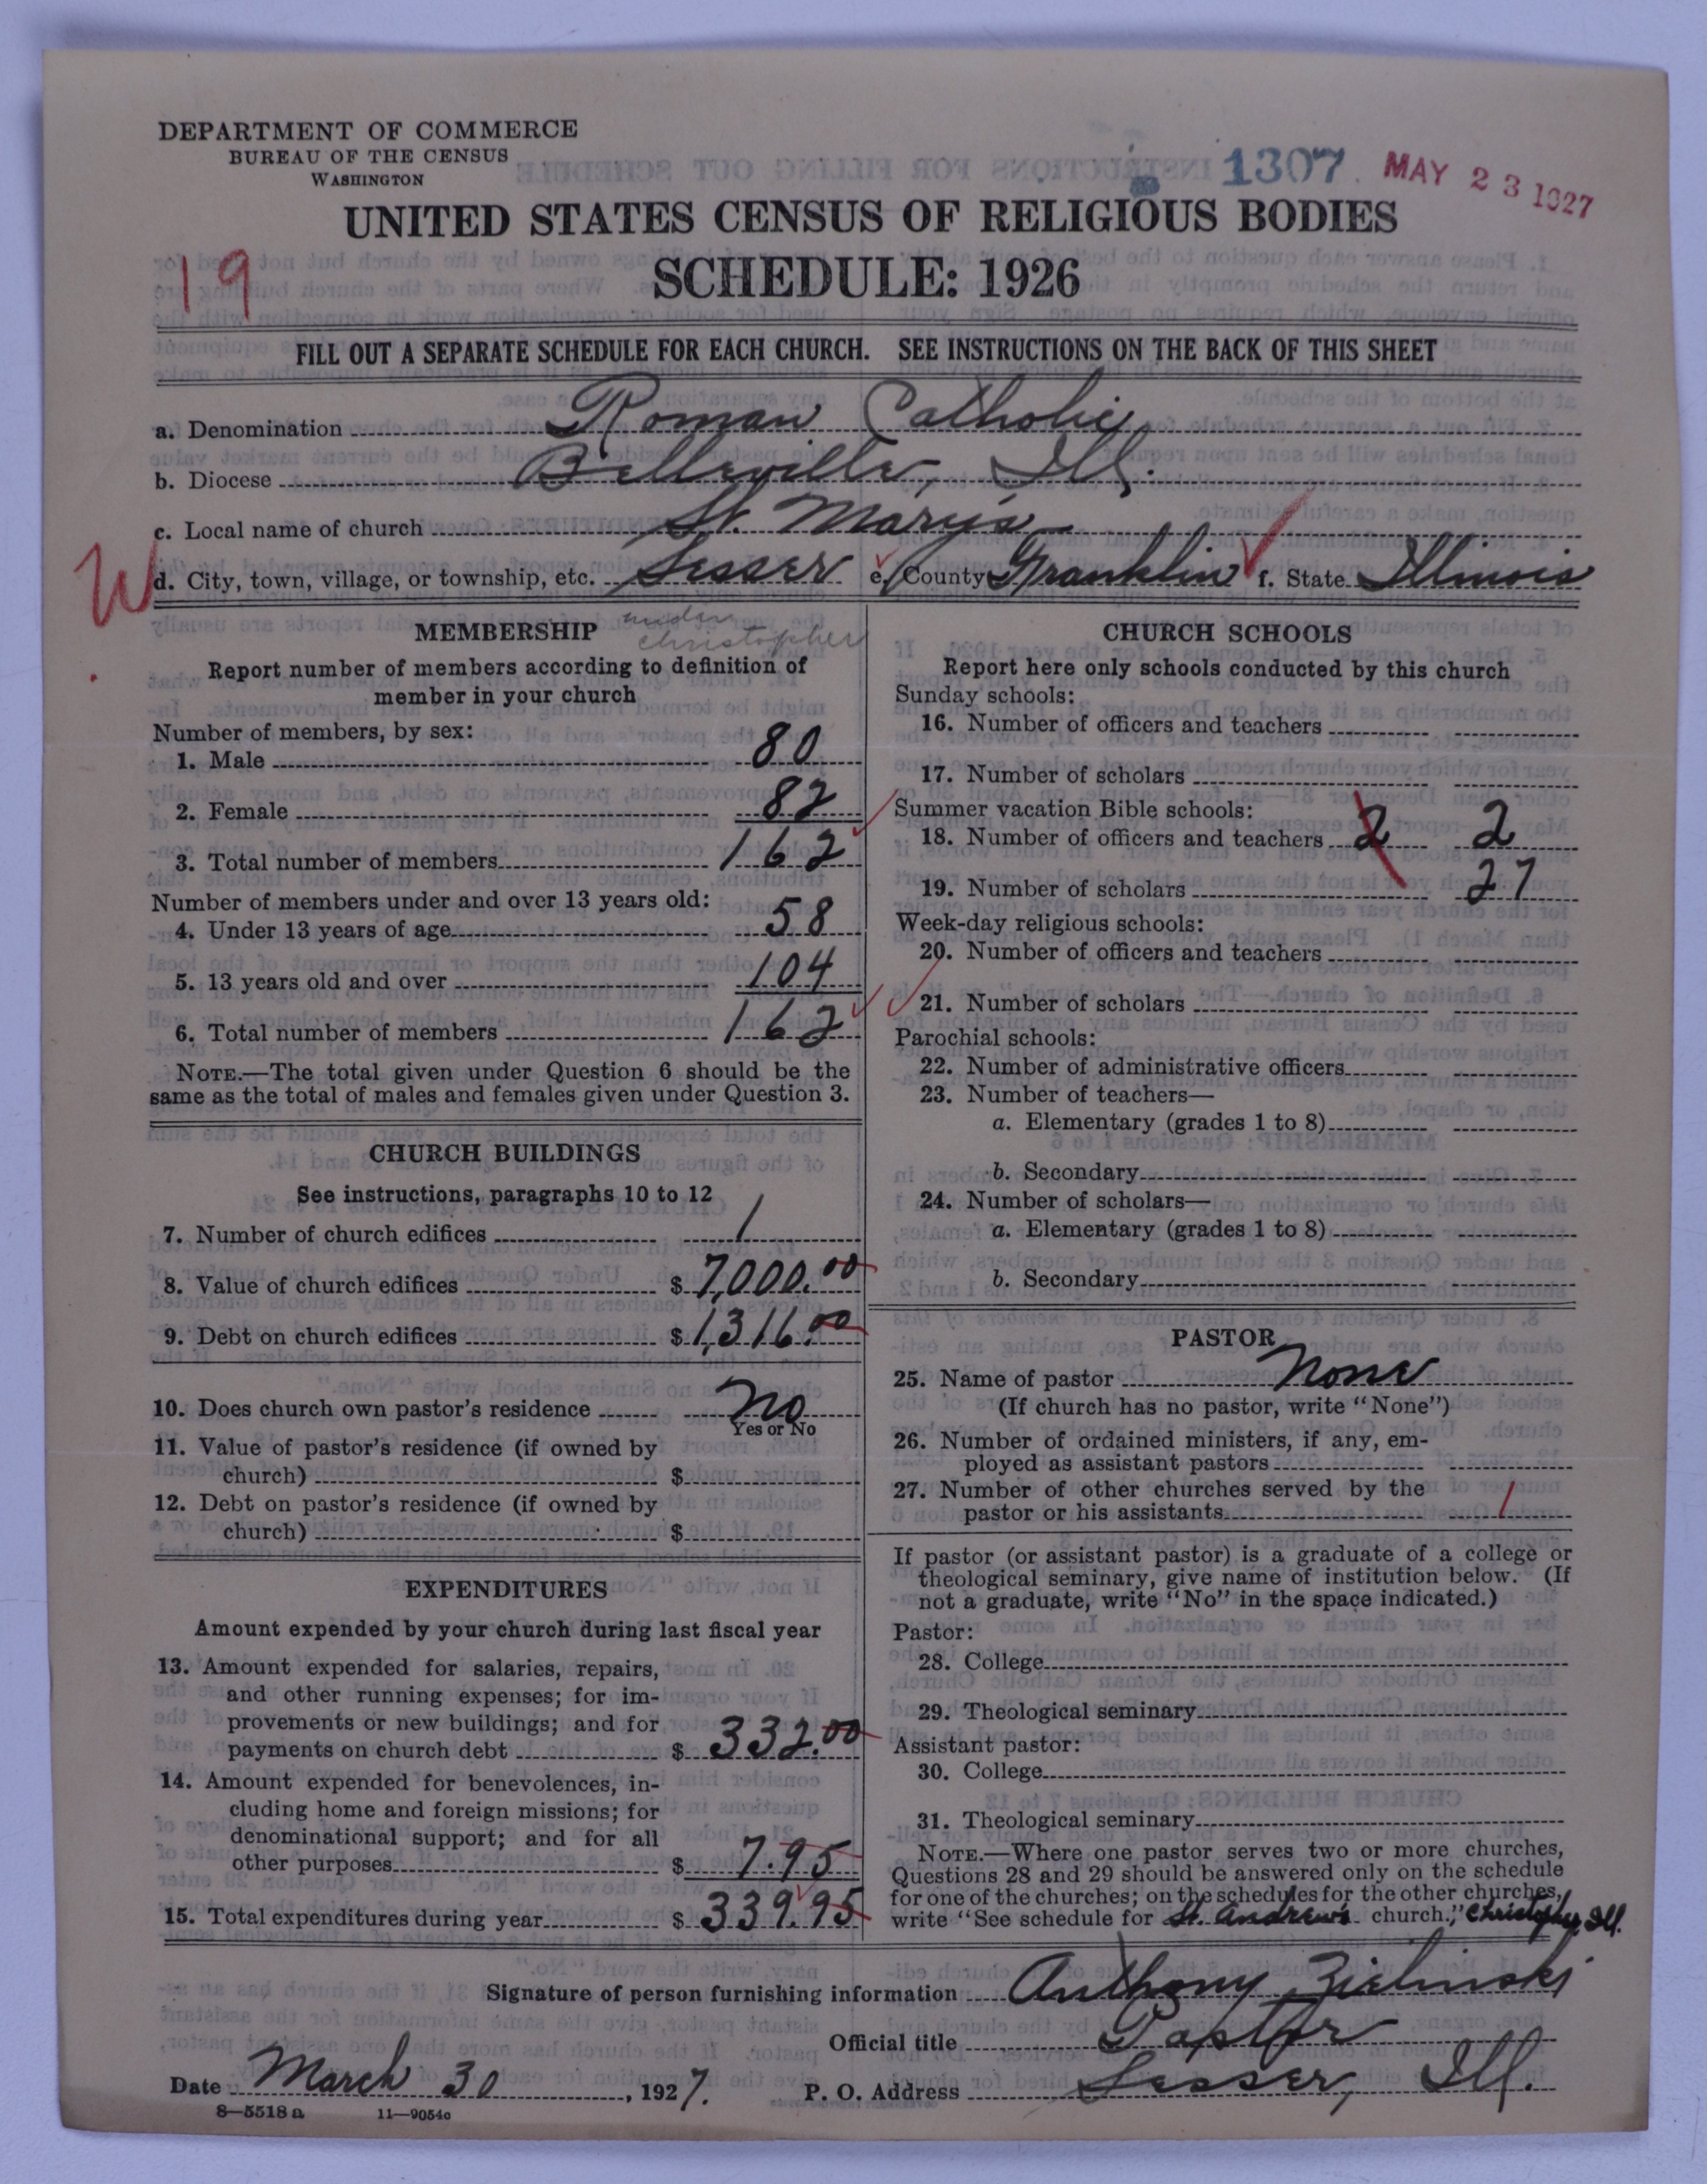 DEPARTMENT OF COMMERCE
BUREAU OF THE CENSUS
WASHINGTON
1307
MAY 23 1927
UNITED STATES CENSUS OF RELIGIOUS BODIES
19
SCHEDULE: 1926
FILL OUT A SEPARATE SCHEDULE FOR EACH CHURCH. SEE INSTRUCTIONS ON THE BACK OF THIS SHEET
a. Denomination Roman Catholic
b. Diocese Belleville, Ill.
c. Local name of church St. Mary's
W d. City, town, village, or township, etc. Sesser e. County Franklin f. State Illinois
under
christopher
MEMBERSHIP
Report number of members according to definition of
member in your church
Number of members, by sex:
1. Male 80
2. Female 82
3. Total number of members 162
Number of members under and over 13 years old:
4. Under 13 years of age 58
5. 13 years old and over 104
6. Total number of members 162
NOTE.—The total given under Question 6 should be the
same as the total of males and females given under Question 3.
CHURCH BUILDINGS
See instructions, paragraphs 10 to 12
7. Number of church edifices 1
8. Value of church edifices $ 7,000.00
9. Debt on church edifices $ 1,316.00
10. Does church own pastor's residence No
Yes or No
11. Value of pastor's residence (if owned by
church) $
12. Debt on pastor's residence (if owned by
church) $
EXPENDITURES
Amount expended by your church during last fiscal year
13. Amount expended for salaries, repairs,
and other running expenses; for im-
provements or new buildings; and for
payments on church debt $ 332.00
14. Amount expended for benevolences, in-
cluding home and foreign missions; for
denominational support; and for all
other purposes $ 7.95
15. Total expenditures during year $ 339.95
CHURCH SCHOOLS
Report here only schools conducted by this church
Sunday schools:
16. Number of officers and teachers
17. Number of scholars
Summer vacation Bible schools:
18. Number of officers and teachers 2 2
19. Number of scholars 27
Week-day religious schools:
20. Number of officers and teachers
21. Number of scholars
Parochial schools:
22. Number of administrative officers
23. Number of teachers—
a. Elementary (grades 1 to 8)
b. Secondary
24. Number of scholars—
a. Elementary (grades 1 to 8)
b. Secondary
PASTOR
25. Name of pastor None
(If church has no pastor, write "None")
26. Number of ordained ministers, if any, em-
ployed as assistant pastors
27. Number of other churches served by the
pastor or his assistants 1
If pastor (or assistant pastor) is a graduate of a college or
theological seminary, give name of institution below. (If
not a graduate, write "No" in the space indicated.)
Pastor:
28. College
29. Theological seminary
Assistant pastor:
30. College
31. Theological seminary
NOTE.—Where one pastor serves two or more churches,
Questions 28 and 29 should be answered only on the schedule
for one of the churches; on the schedules for the other churches,
write "See schedule for St. Andrews church." Christopher, Ill.
Signature of person furnishing information Anthony Zielinski
Official title Pastor
Date March 30, 1927. P. O. Address Sesser, Ill.
8—5518 a 11—9054c